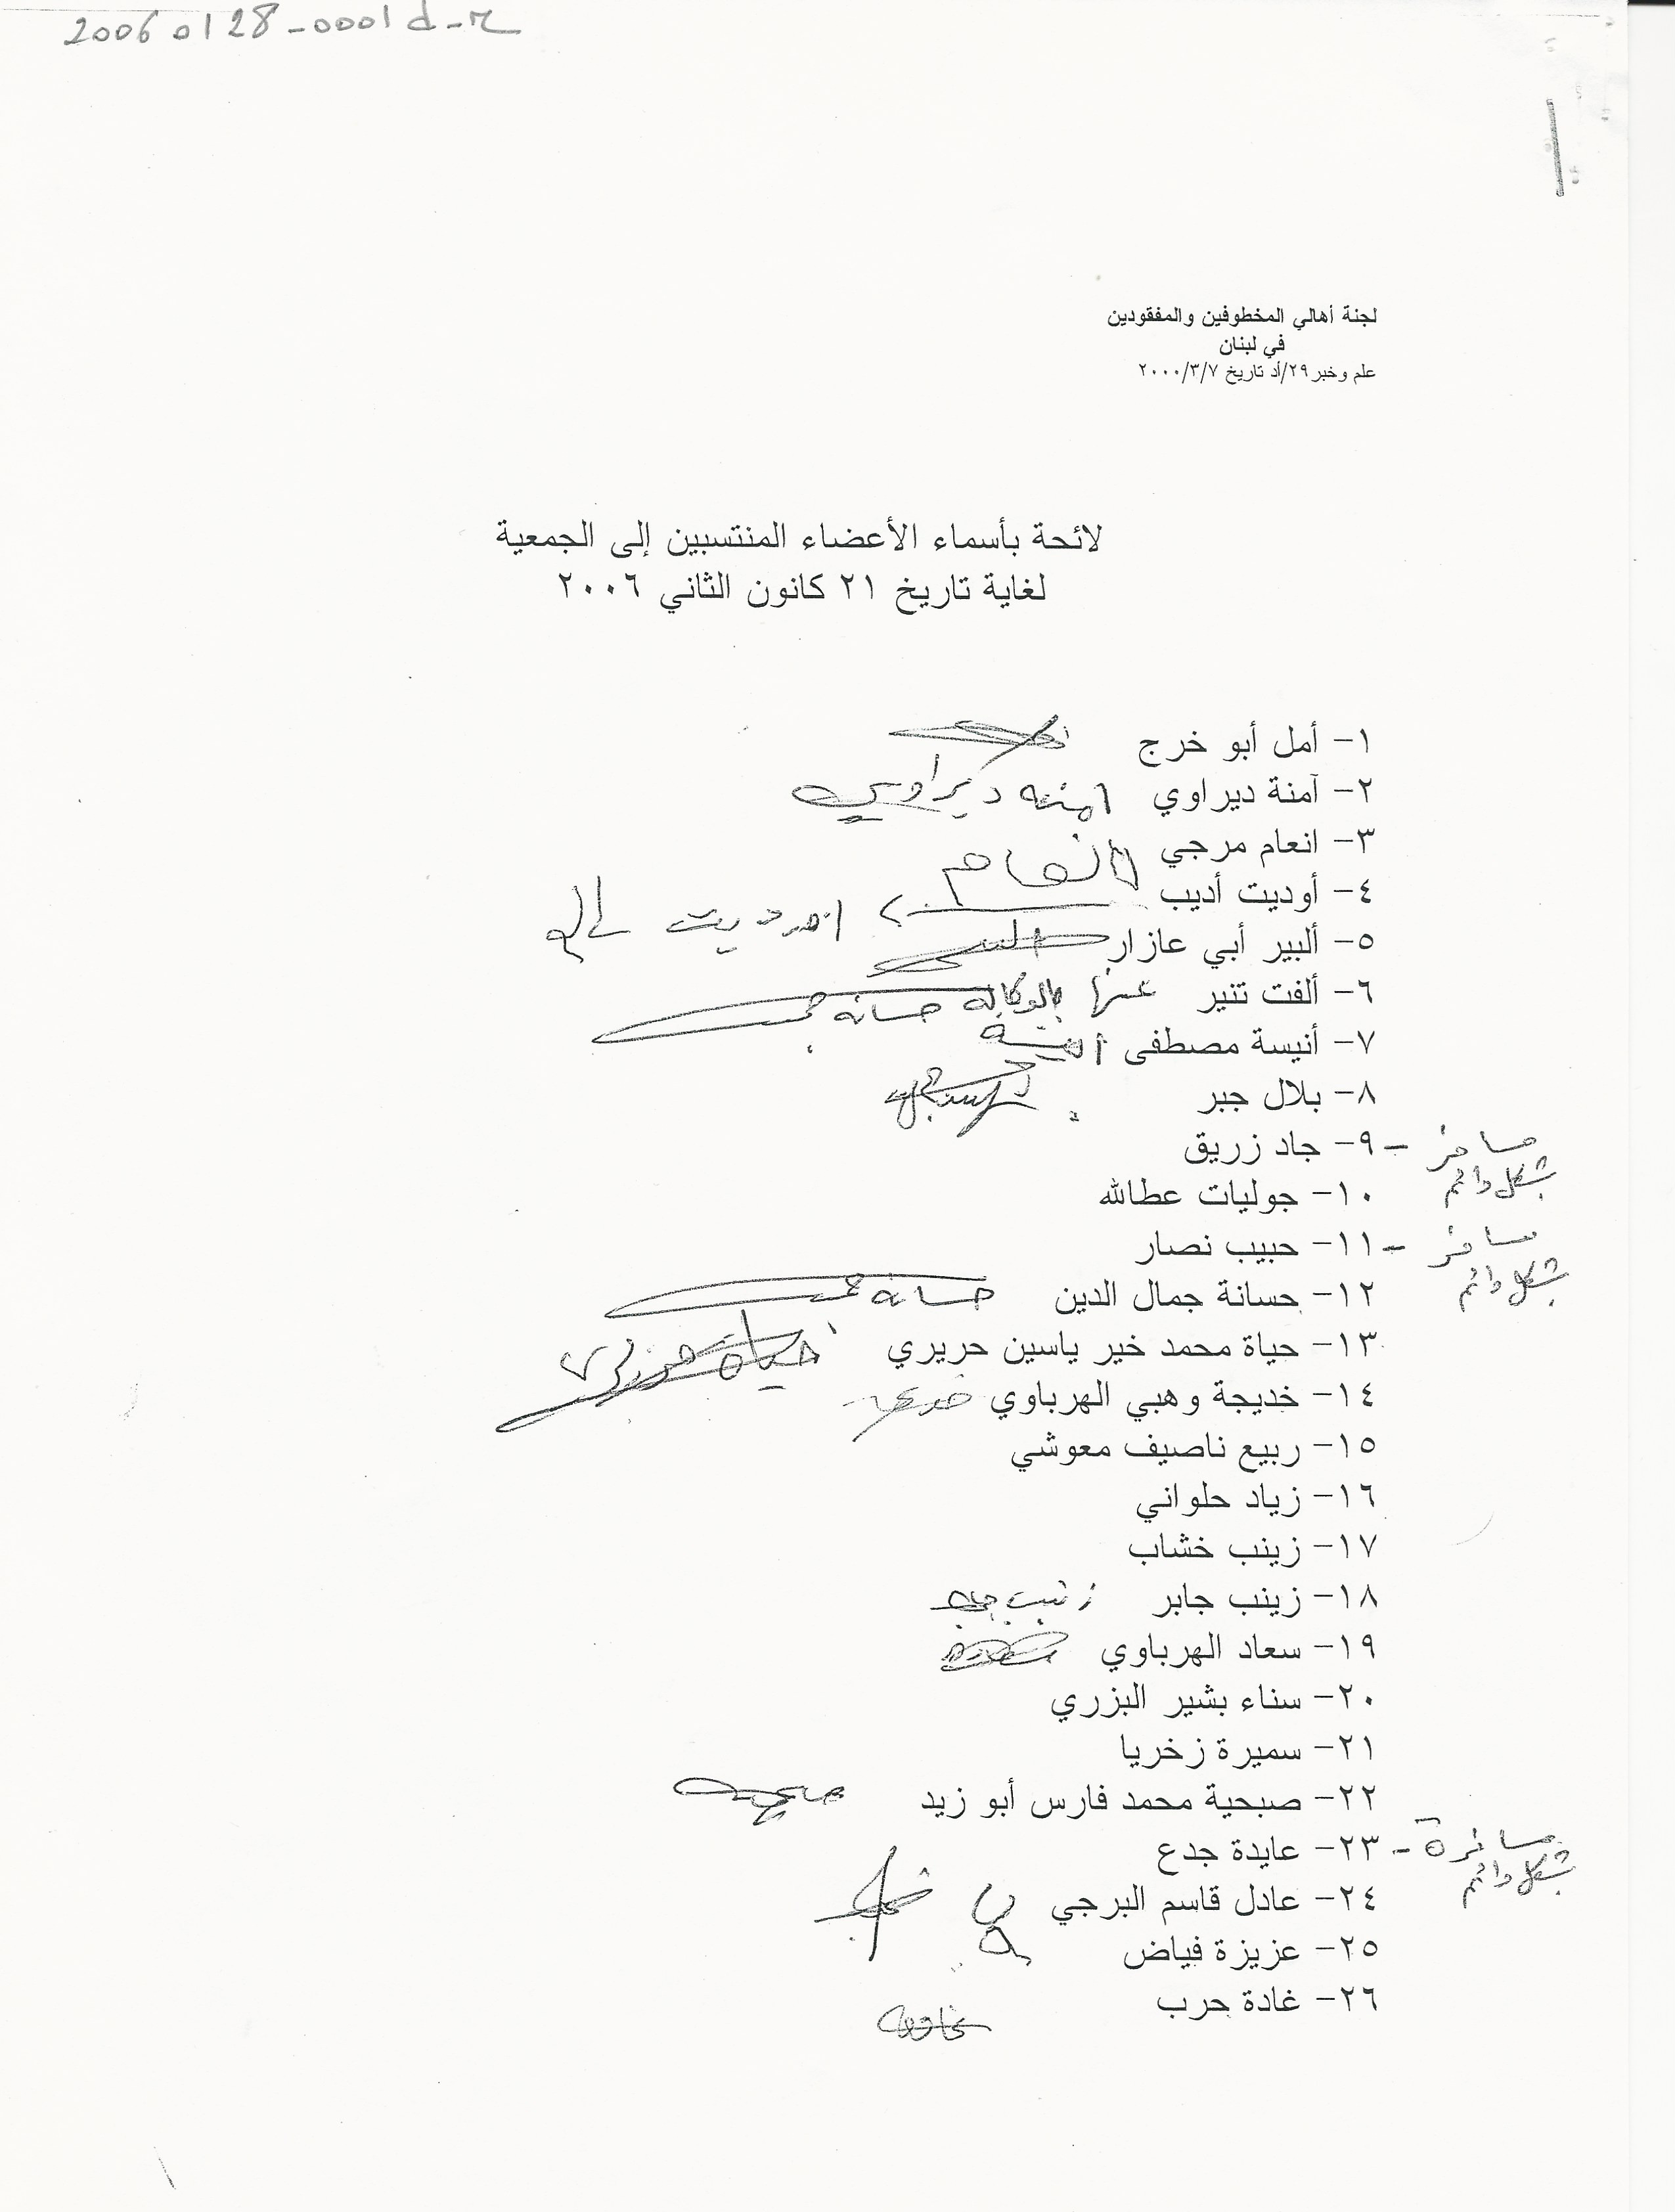 20060128-0001d-r
لجنة أهالي المخطوفين والمفقودين
في لبنان
علم وخبر ٢٩/أد تاريخ ٢٠٠٠/٣/٧
لائحة بأسماء الأعضاء المنتسبين إلى الجمعية
لغاية تاريخ ٢١ كانون الثاني ٢٠٠٦
١- أمل أبو خرج
٢- آمنة ديراوي امنه ديراوي
٣- انعام مرجي انعام
٤- أوديت أديب اوديت
٥- ألبير أبي عازار البير
٦- ألفت تنير عنها بالوكالة حسانه
٧- أنيسة مصطفى انيسة
٨- بلال جبر
مسافر - ٩- جاد زريق
بشكل دائم
١٠- جوليات عطالله
مسافر - ١١- حبيب نصار
بشكل دائم
١٢- حسانة جمال الدين حسانه
١٣- حياة محمد خير ياسين حريري حياة حريري
١٤- خديجة وهبي الهرباوي
١٥- ربيع ناصيف معوشي
١٦- زياد حلواني
١٧- زينب خشاب
١٨- زينب جابر زينب جابر
١٩- سعاد الهرباوي
٢٠- سناء بشير البزري
٢١- سميرة زخريا
٢٢- صبحية محمد فارس أبو زيد
مسافرة - ٢٣- عايدة جدع
بشكل دائم
٢٤- عادل قاسم البرجي
٢٥- عزيزة فياض
٢٦- غادة حرب